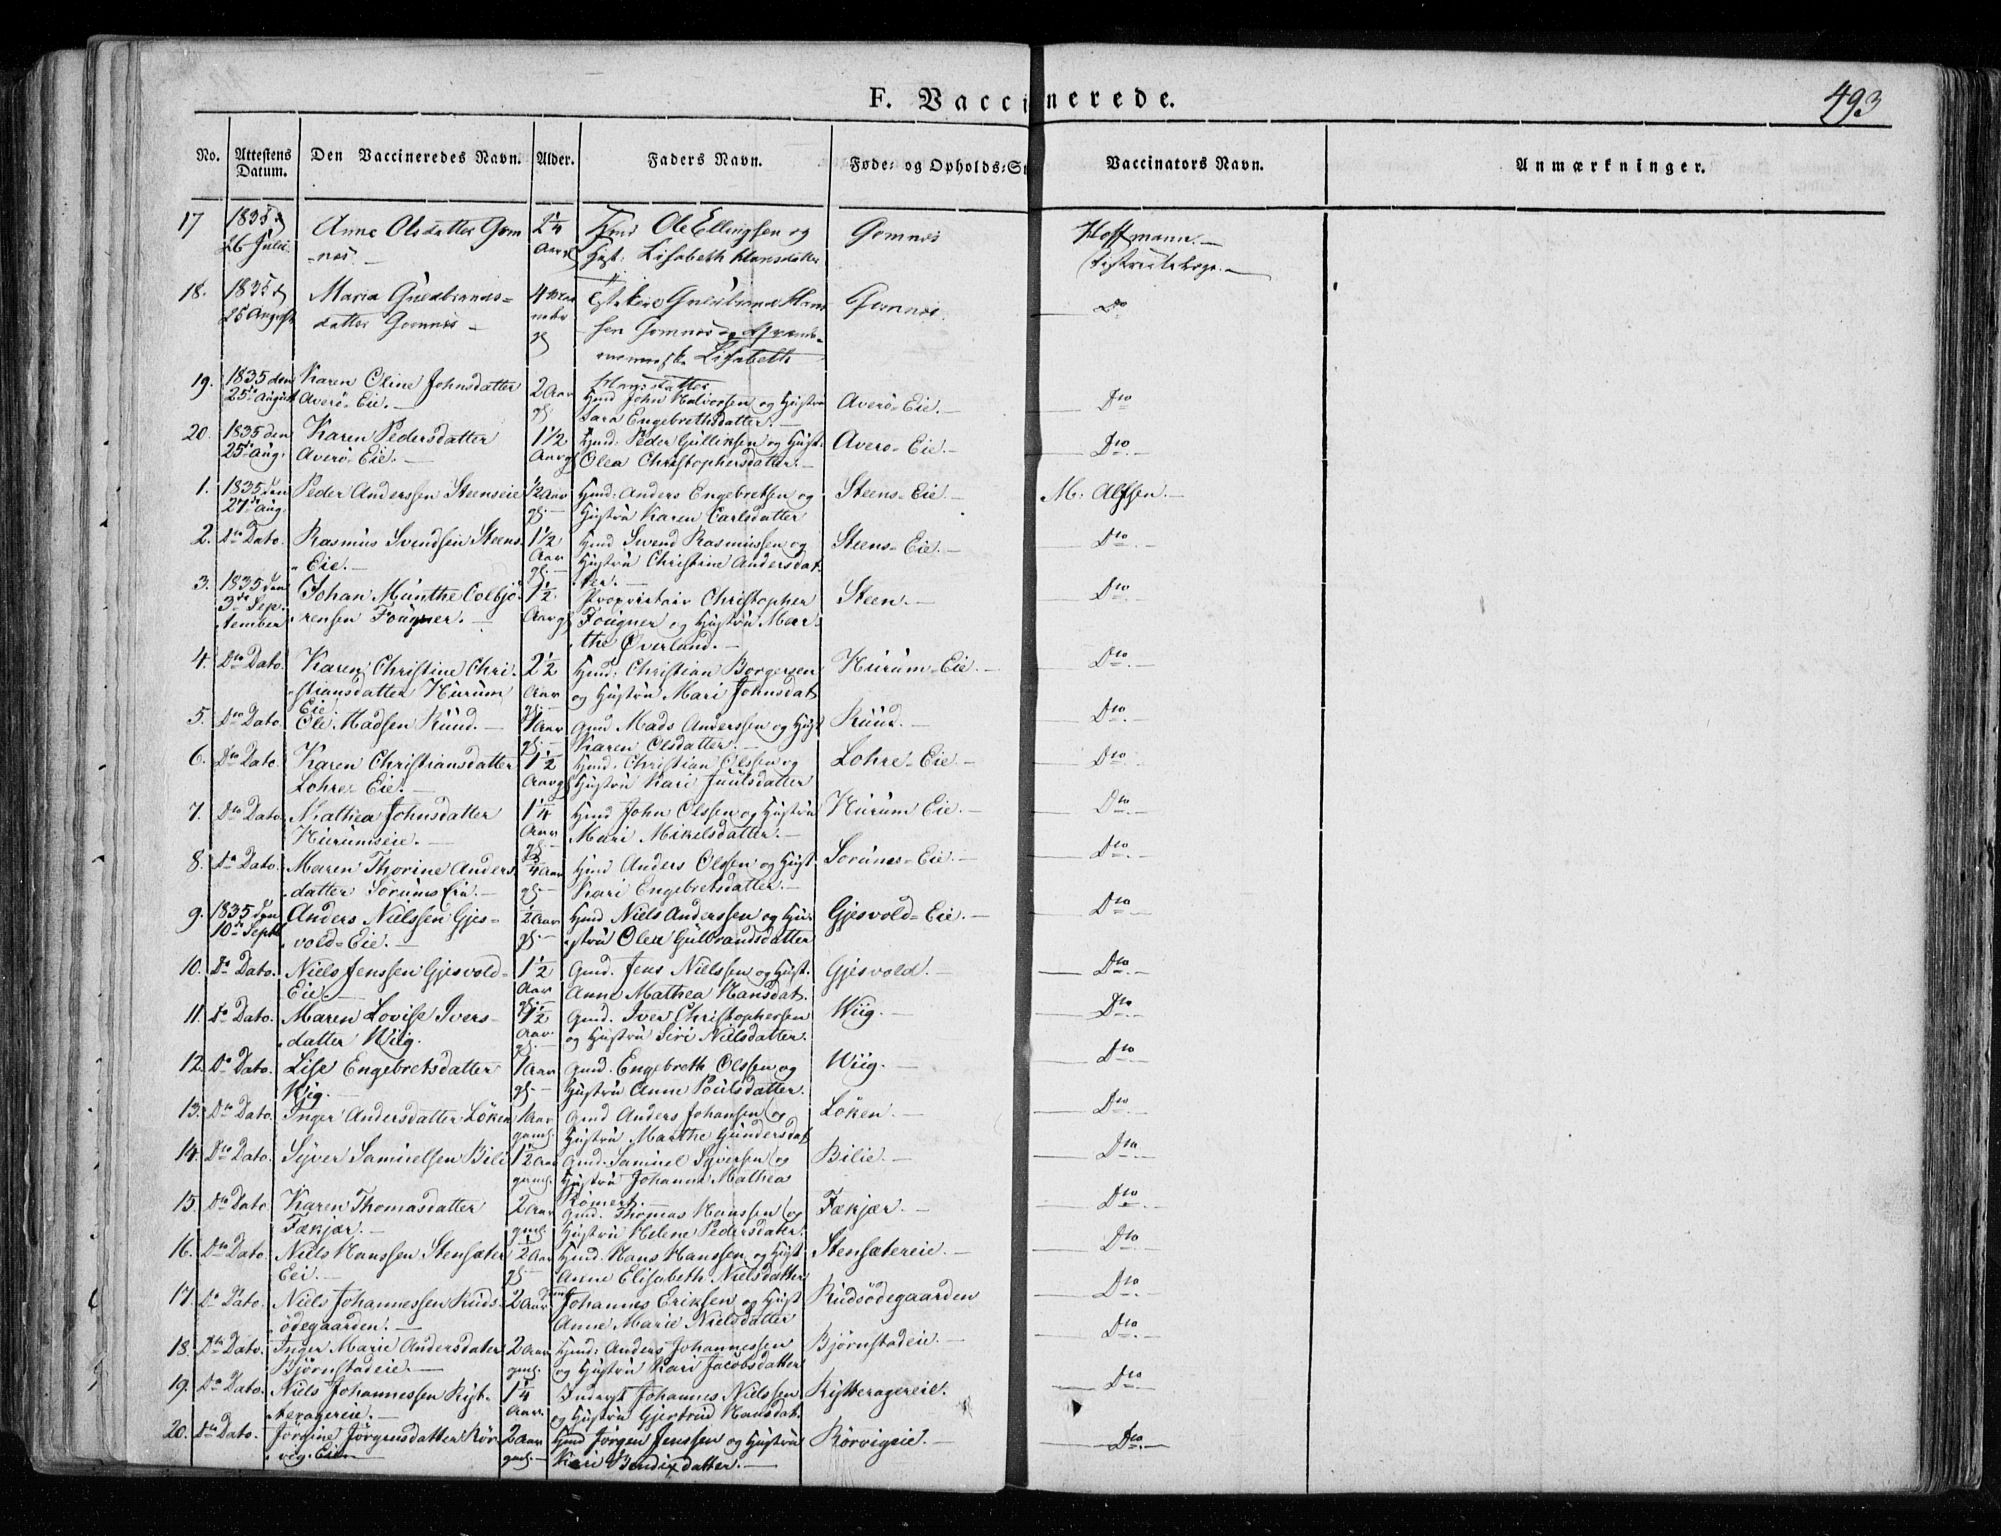 F. Vaccinerede.
493
No. Attestens Datum. Den Vaccineredes Navn. Alder. Faders Navn. Føde- og Opholds-St Vaccinators Navn. Anmærkninger.
17 1835 d 26 Juli Anne Olsdatter Gomnæs 2¼ Aar Ole Ellingsen og Hust: Lisabeth Hansdatter Gomnæs Hoffmann.
18. 1835 d 25 August Maria Guldbrandsdatter Gomnæs Guldbrand Hansen Gomnæs og Lisabeth Hansdatter Gomnæs Do
19. 1835 den 25de August Karen Oline Johnsdatter Averö-Eie. 2 Aar gl. Hmd John Halvorsen og Hustru Sara Engebrethsdatter. Averö-Eie. Dto
20. 1835 den 25de Aug. Karen Pedersdatter Averö-Eie. 1½ Aar gl Hmd: Peder Gulliksen og Hust. Olea Christophersdatter. Averö-Eie. Dto
1. 1835 den 27de Aug. Peder Anderssen Steenseie ½ Aar gl. Hmd: Anders Engebretsen og Hustru Karen Carlsdatter Steens-Eie. M. Alfsen.
2. Dto Dato. Rasmus Svendsen Steens-Eie. 1½ Aar gl. Hmd Svend Rasmussen og Hustru Christine Andersdatter. Steens-Eie. Dto
3. 1835 den 3de September Johan Münthe Colbjørensen Fougner. 1½ Aar gl Proprietair Christopher Fougner og Hustru Marthe Øverland. Steen. Dto
4. Dto Dato. Karen Christine Christiansdatter Hurum Eie. 2½ Aar gl. Hmd: Christian Borgersen og Hustru Mari Johnsdat Hurum-Eie. Dto
5. Dto Dato. Ole Madsen Ruud. 1 Aar gl. Gmd Mads Anderssen og Hust Karen Olsdatter. Ruud. Dto
6. Dto Dato. Karen Christiansdatter Lohre-Eie. 1½ Aar gl Hmd. Christian Olssen og Hustru Kari Juulsdatter Lohre-Eie. Dto
7. Dto Dato. Mathea Johnsdatter Hurumseie. 1¼ Aar gl. Hmd John Olssen og Hustru Mari Mikelsdatter. Hurum Eie. Dto
8. Do Dato. Maren Thorine Andersdatter Sorums Eie. ¾ Aar gl. Hmd Anders Olssen og Hust Kari Engebretsdatter. Sorums-Eie. Dto
9. 1835 den 10de Septb Anders Nielssen Gjesvold-Eie. ½ Aar gl. Hmd Niels Anderssen og Hustru Olea Gulbrandsdatter Gjesvold-Eie. Dto
10. Do Dato. Niels Jenssen Gjesvold-Eie. 1½ Aar gl. Gmd. Jens Nielssen og Hust. Anne Mathea Hansdat. Gjesvold. Dto
11. Do Dato. Maren Lovise Iversdatter Wiig. 1½ Aar. gl. Gmd. Iver Christophersen og Hustru Siri Nielsdatter. Wiig. Dto
12. Do Dato. Lise Engebretsdatter Wiig. 1 Aar gl. Gmd. Engebreth Olssen og Hustru Anne Poulsdatter. Wiig. Dto
13. Dto Dato. Inger Andersdatter Löken 1 Aar gaml. Gmd Anders Johansen og Hustru Marthe Gundersdat Löken. Dto
14. Dto Dato. Syver Samuelsen Bili 1½ Aar gaml. Gmd. Samuel Syversen og Hustru Johanne Mathea Römert. Bilie. Dto
15. Dto Dato Karen Thomasdatter Fækjær. 2 Aar gml. Gmd. Thomas Hanssen og Hustru Helene Pedersdater. Fækjær. Dto
16. Dto Dato. Niels Hanssen Stensater Eei. ½ Aar gl. Hmd. Hans Hanssen og Hust Anne Elisabeth Nielsdatter Stensatereie. Dto
17. Do Dato. Niels Johannessen Rudsödegaarden. 2 Aar Johannes Eriksen og Hust Anne Marie Nielsdatter Rudsödegaarden Dto
18. Dto Dato. Inger Marie Andersdater Bjørnstadeie. 2 Aar gml. Hmd: Anders Johannessen og Hustru Kari Jacobsdatter Bjørnstadeie. Dto
19. Do Dato. Niels Johannessen Rytteragereie. 1¼ Aar. Inderst Johannes Nielssen og Hustru Gjertrud Hansdat. Rytteragereie. Dto
20. Dto Dato. Jörgine Jörgensdatter Rörvig-Eie 2 Aar gml. Hmd Jörgen Jenssen og Hustru Kari Bendixdatter. Rörvigeie. Dto